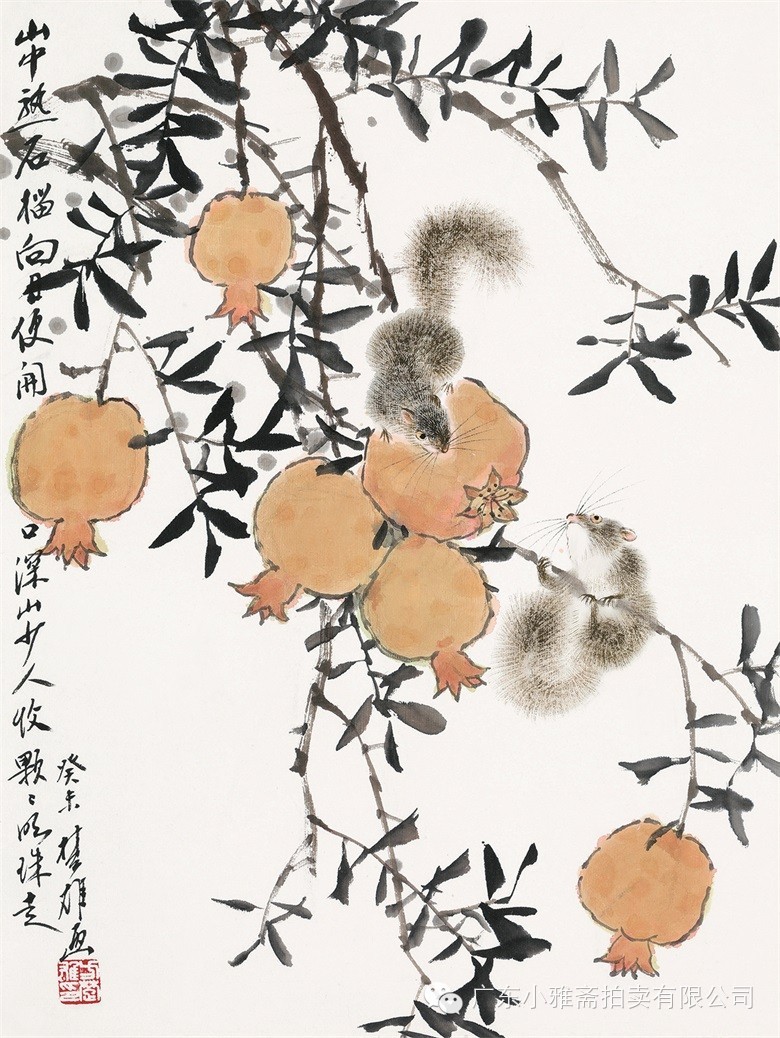 山中熟石榴向日便開口深山少人收顆〻明珠走
癸未楚雄画
广东小雅斋拍卖有限公司